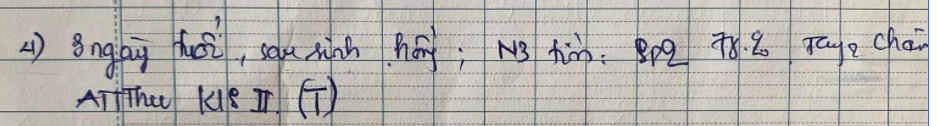 4) 3 ngày tuổi, sau sinh hồng; N3 tím: Sp2 78.2 Tay2 chân
ATTThu KLS II (T)